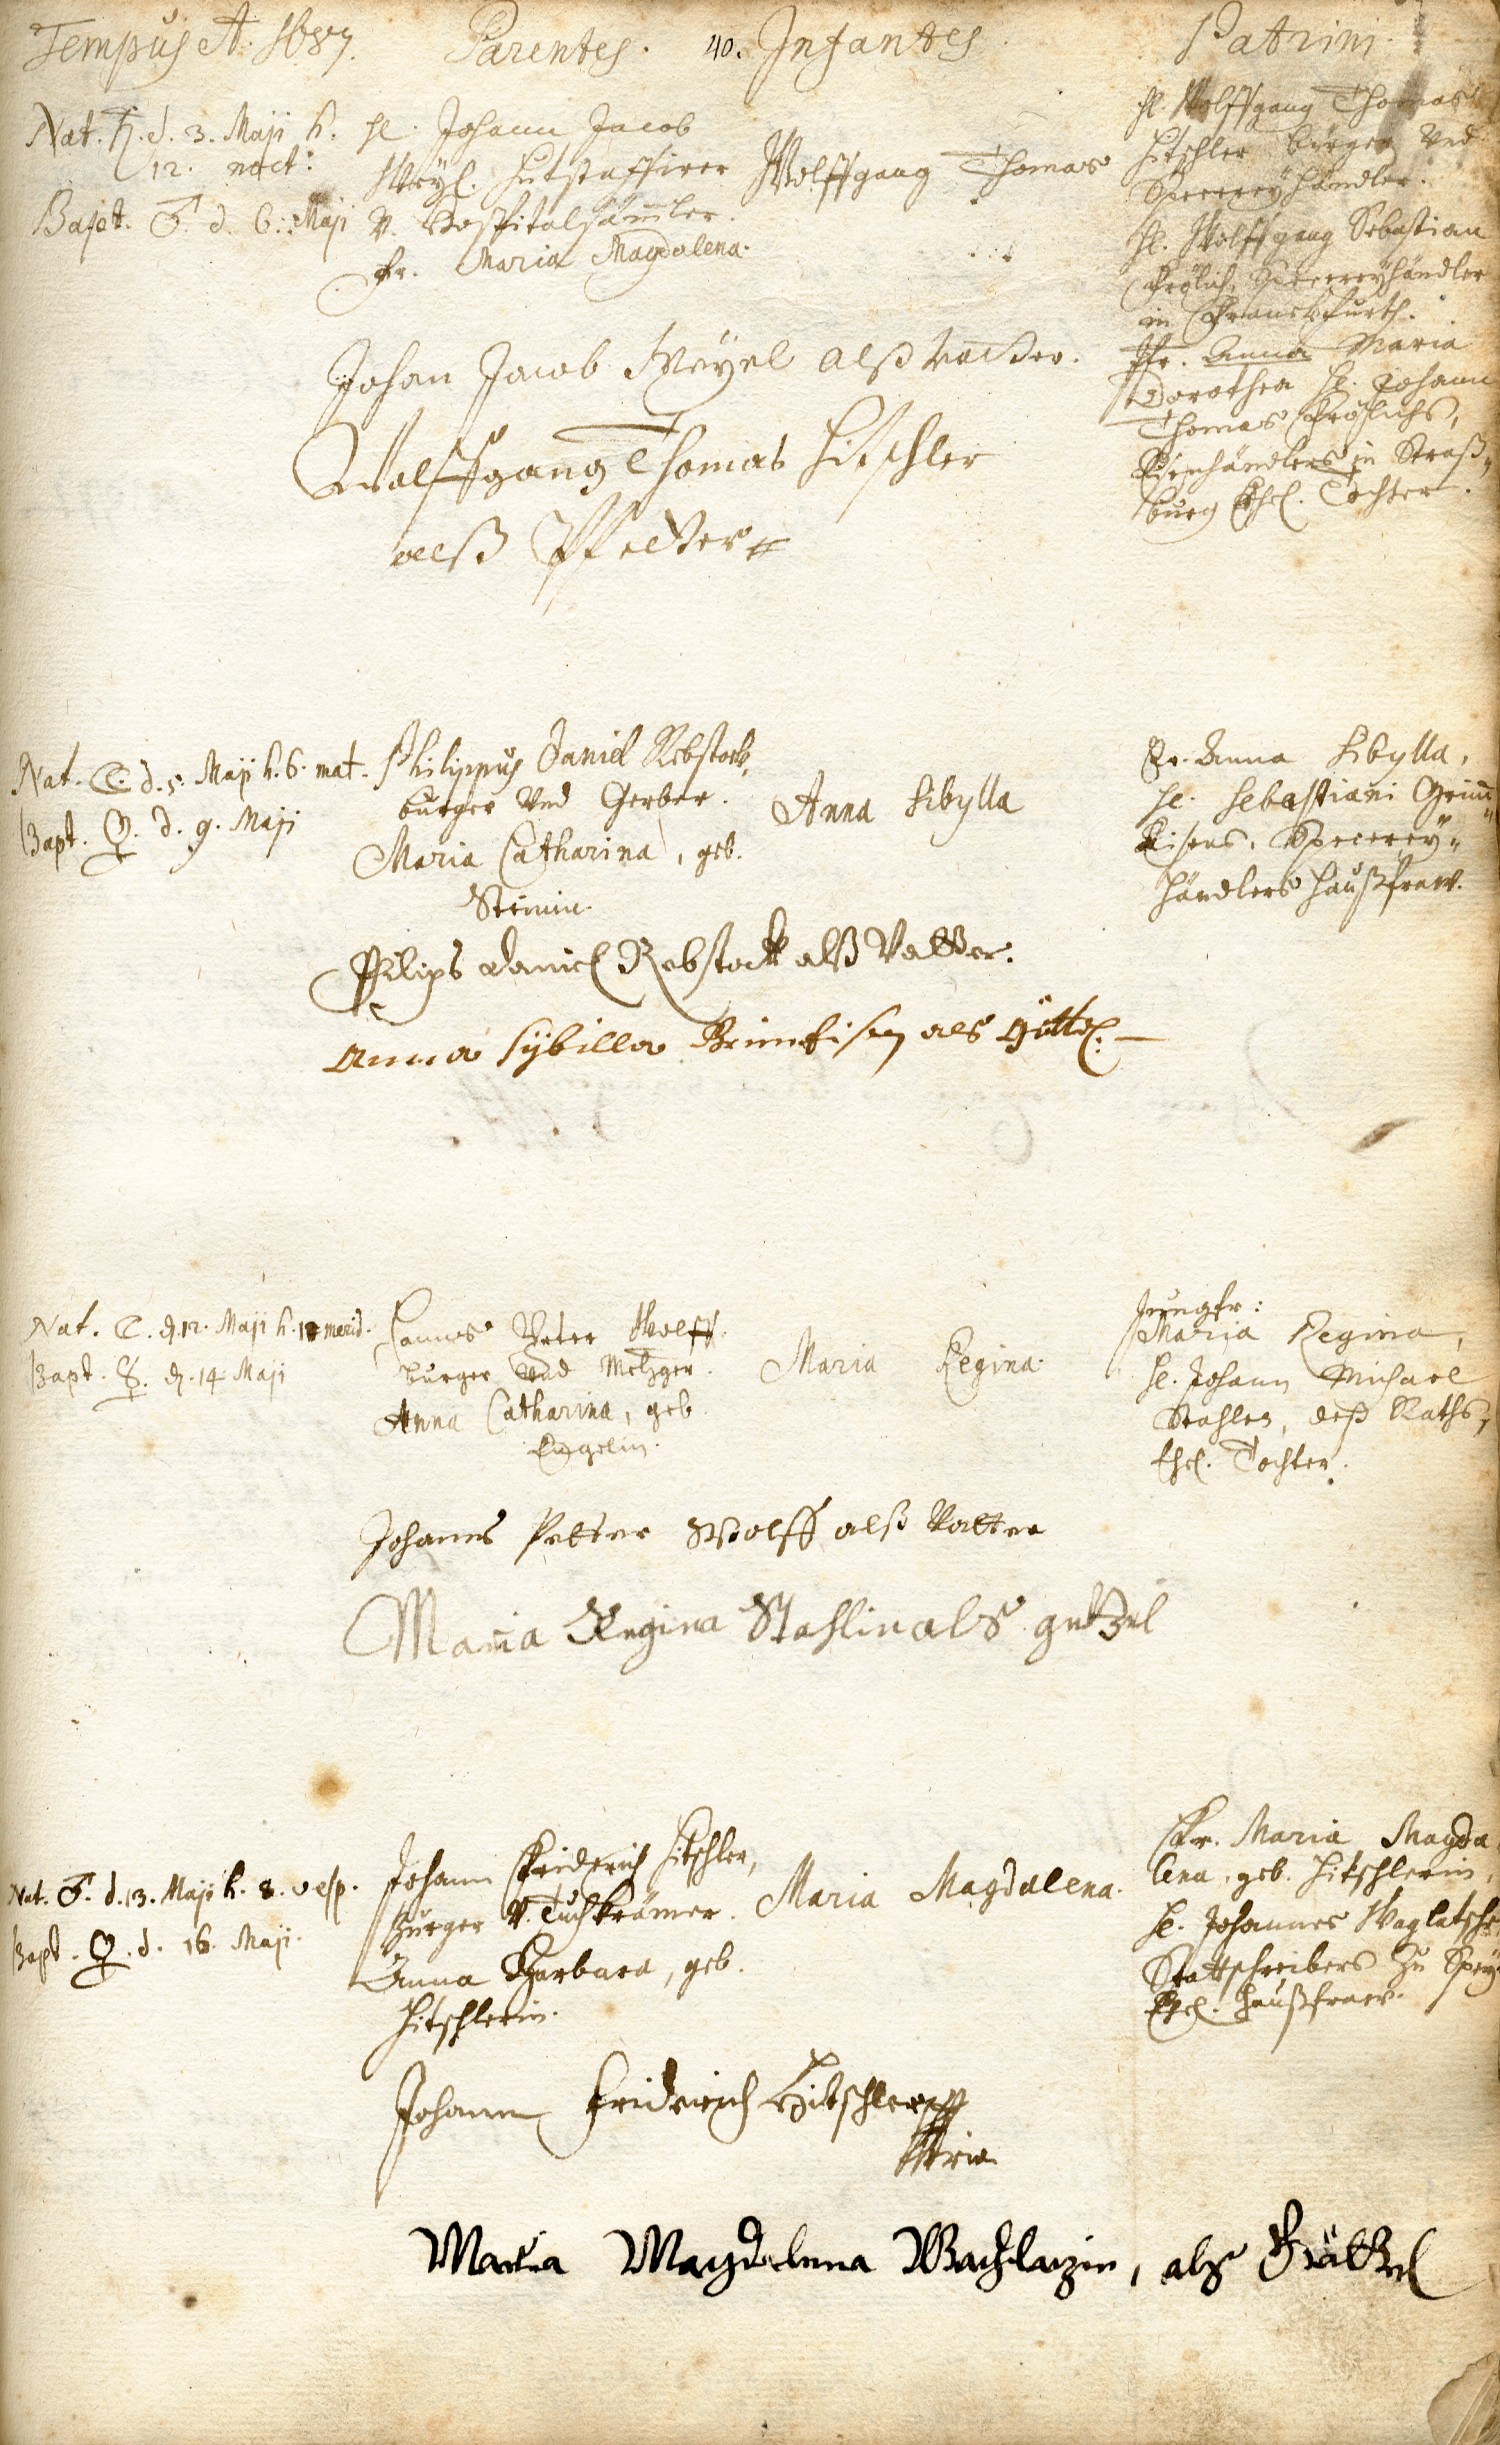 Tempus A. 1687. Parentes. 40. Infantes Patrini.
Nat. ♄. d. 3. Maji h.
12. noct:
Bapt. ♂. d. 6. Maji
H. Johann Jacob
Weÿl. Hutstaffirer
V. Hospitalsam̄ler.
Fr. Maria Magdalena.
Wolffgang Thomas
H. Wolffgang Thomas
Hitschler burger Vnd
Specereÿhändler.
H. Wolffgang Sebastian
Frölich, Specereÿhändler
in Franckfurth.
Jfr. Anna Maria
Dorothea H. Johann
Thomas Frölichs,
Eisenhändlers in Straß-
burg Ehel. Tochter.
Johan Jacob Weÿel alß Vatter.
Wolffgang Thomas Hitschler
alß Pfetter
Nat. ☾. d. 5. Maji h. 6. mat.
Bapt. ♀. d. 9. Maji
Philippus Daniel Rebstock,
burger Vnd Gerber.
Maria Catharina, geb.
Steinin.
Anna Sibylla
Fr. Anna Sibylla,
H. Sebastiani Grün-
Eisens, Specereÿ-
händlers Haußfraw.
Philips Daniel Rebstock alß Vatter.
Anna Sÿbilla als Göttel.
Nat. ☾. d. 12. Maji h. 12 merid.
Bapt. ☿. d. 14 Maji
Hannes Peter Wolff.
burger Vnd Metzger.
Anna Catharina, geb.
Engelin.
Maria Regina.
Jungfr:
Maria Regina,
H. Johann Michael
Stahlen, deß Raths,
Ehel. Tochter.
Johannes Petter Wolff alß Vatter
Maria Regina Stahlin als gettel
Nat. ♂. d. 13. Maji h. 8. vesp.
Bapt. ♀. d. 16. Maji.
Johann Friderich Hitschler,
Burger V. Tuchkrämer.
Anna Barbara, geb.
Hitschlerin.
Maria Magdalena.
Fr. Maria Magda
lena, geb. Hitschlerin,
H. Johannes
Stattschreibers Zu Speÿ
Ehel. Haußfraw.
Johann Friderich Hitschler
Maria Magdalena als Göttel